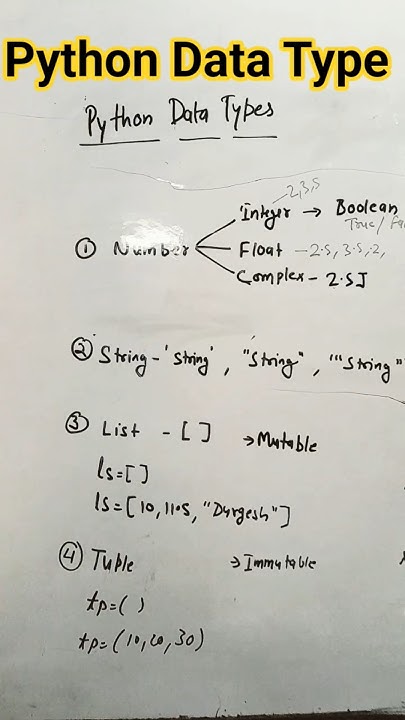 Python Data Type
Python Data Types
2,3,5
Integer → Boolean
True/
① Number
Float - 2.5, 3.5, .2,
Complex - 2.5J
② String - 'String', "String", '''String"
③ List - [ ] → Mutable
ls=[ ]
ls=[10, 11.5, "Durgesh"]
④ Tuple → Immutable
tp=( )
tp=(10,20,30)